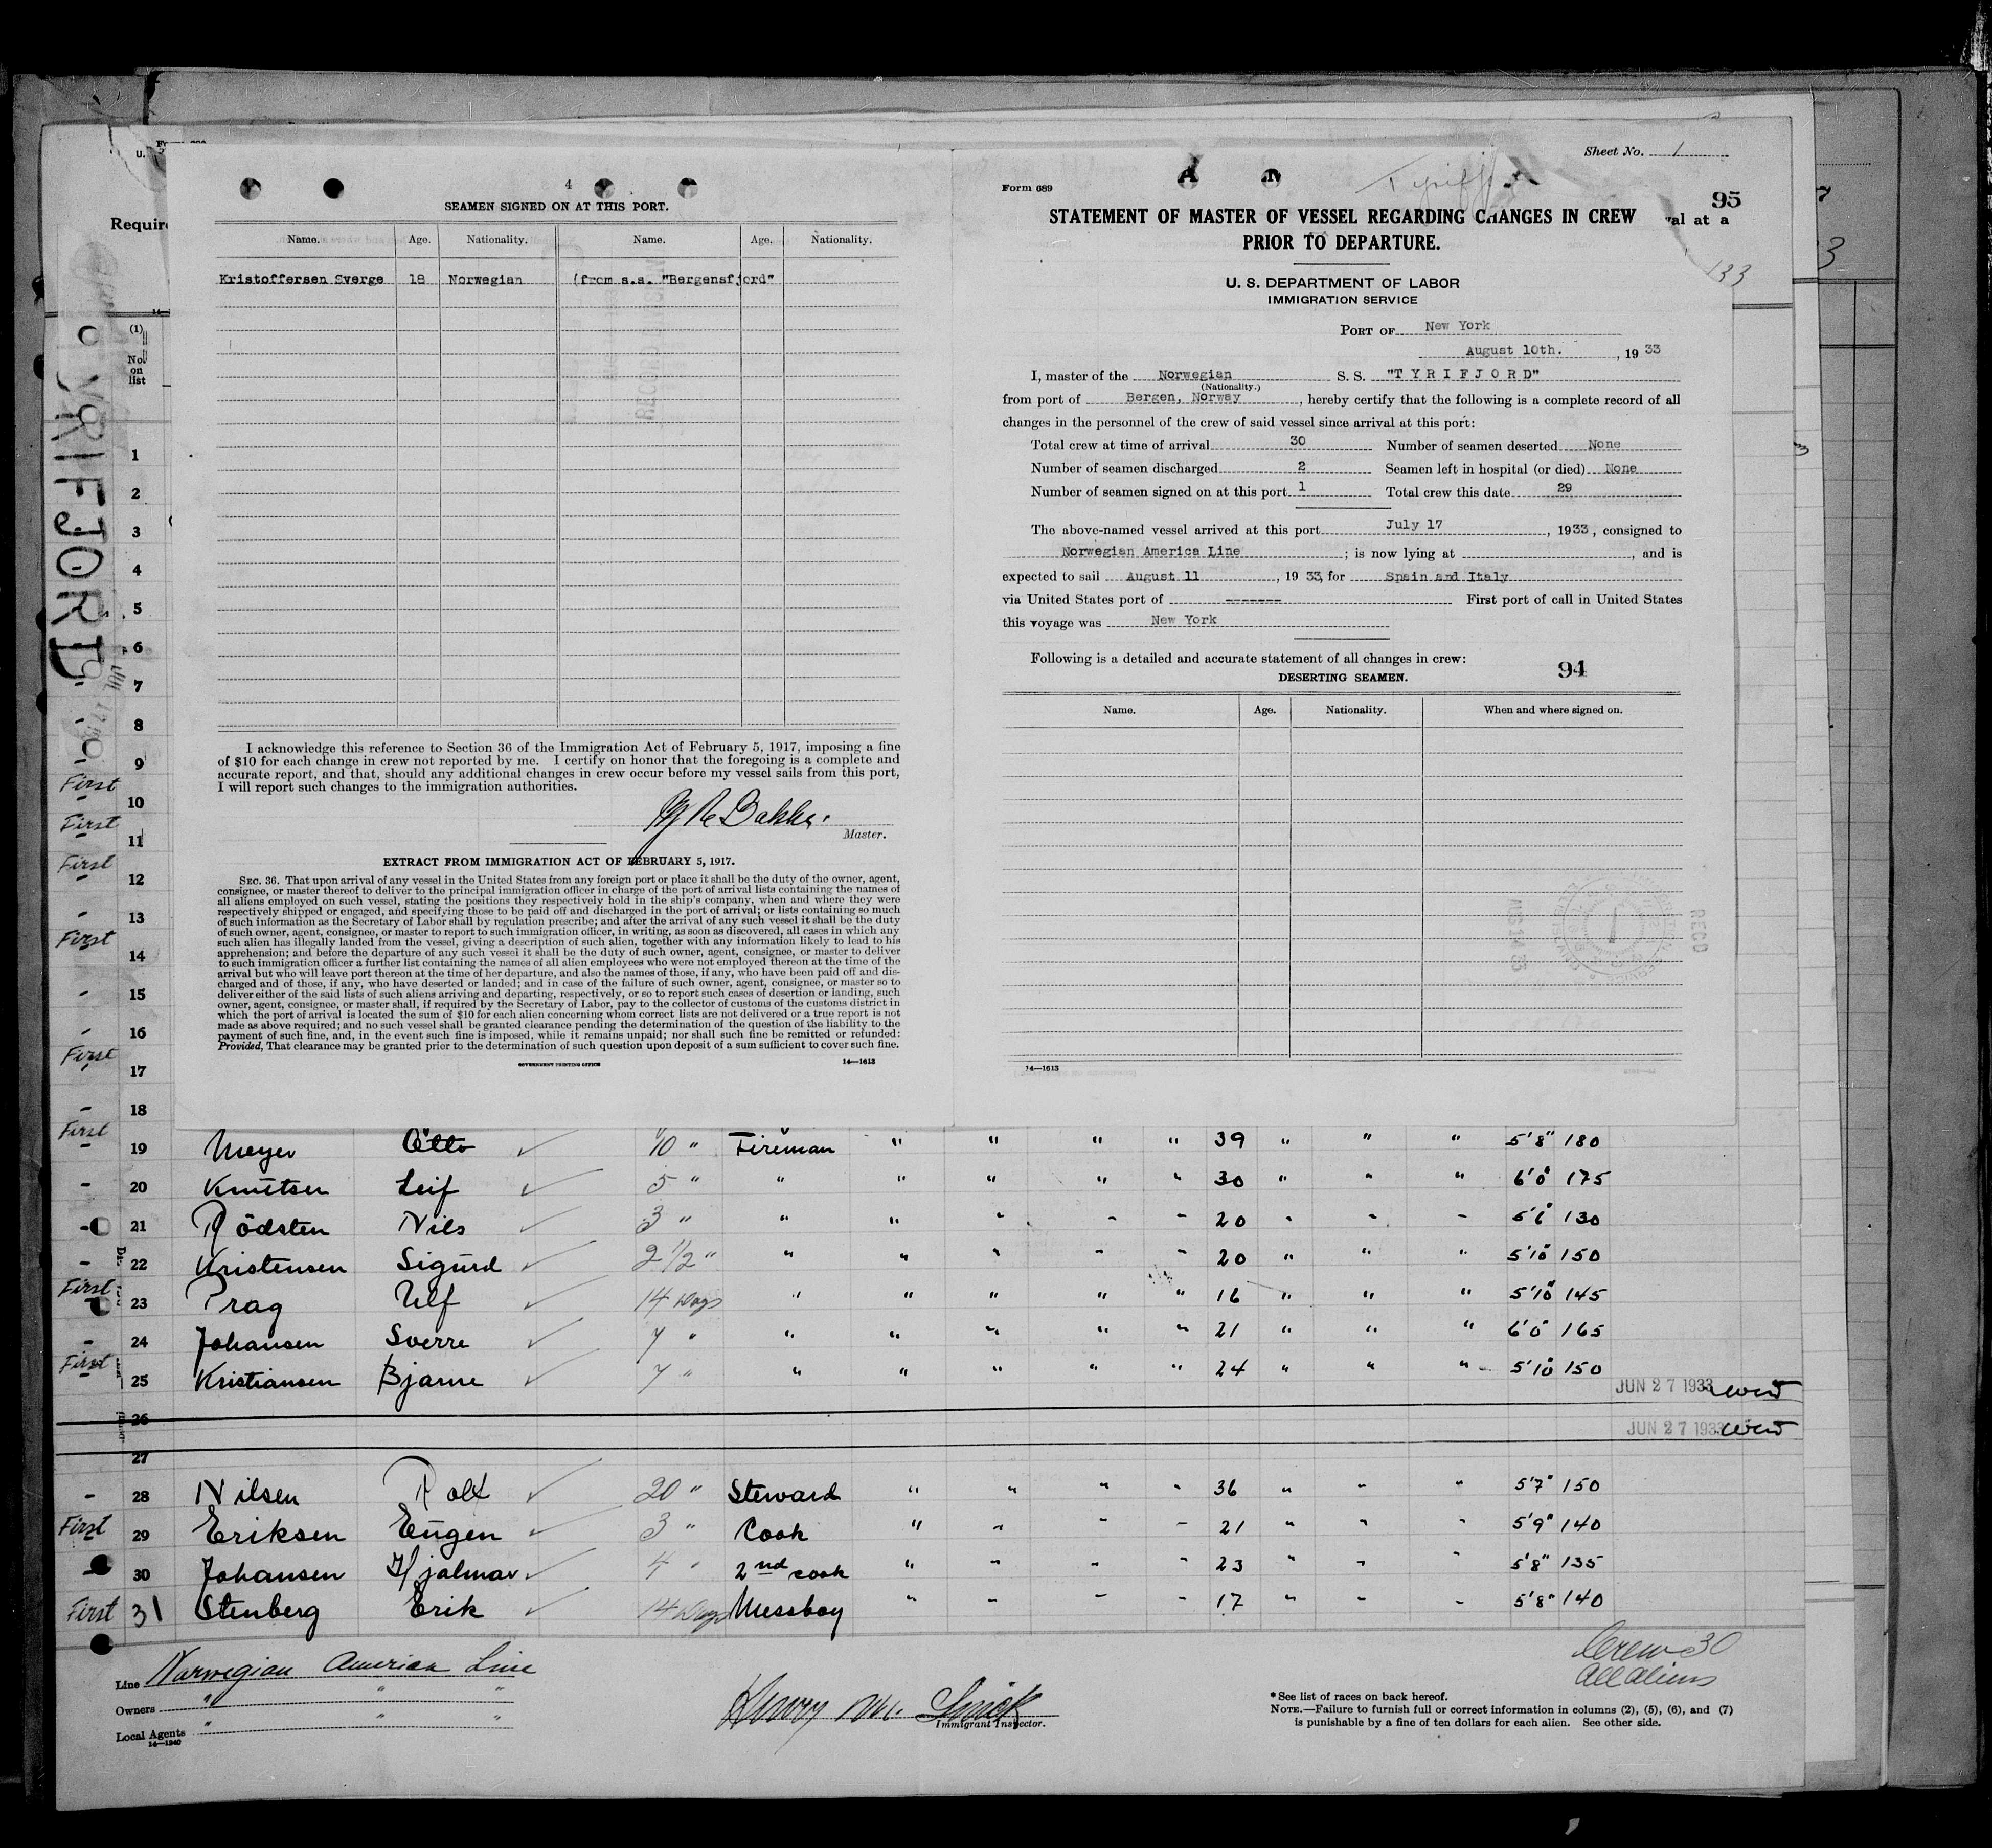 4
SEAMEN SIGNED ON AT THIS PORT.
Name. Age. Nationality. Name. Age. Nationality.
Kristoffersen Sverge 18 Norwegian (from s.s. "Bergensfjord"
I acknowledge this reference to Section 36 of the Immigration Act of February 5, 1917, imposing a fine
of $10 for each change in crew not reported by me. I certify on honor that the foregoing is a complete and
accurate report, and that, should any additional changes in crew occur before my vessel sails from this port,
I will report such changes to the immigration authorities.
Master.
EXTRACT FROM IMMIGRATION ACT OF FEBRUARY 5, 1917.
SEC. 36. That upon arrival of any vessel in the United States from any foreign port or place it shall be the duty of the owner, agent,
consignee, or master thereof to deliver to the principal immigration officer in charge of the port of arrival lists containing the names of
all aliens employed on such vessel, stating the positions they respectively hold in the ship's company, when and where they were
respectively shipped or engaged, and specifying those to be paid off and discharged in the port of arrival; or lists containing so much
of such information as the Secretary of Labor shall by regulation prescribe; and after the arrival of any such vessel it shall be the duty
of such owner, agent, consignee, or master to report to such immigration officer, in writing, as soon as discovered, all cases in which any
such alien has illegally landed from the vessel, giving a description of such alien, together with any information likely to lead to his
apprehension; and before the departure of any such vessel it shall be the duty of such owner, agent, consignee, or master to deliver
to such immigration officer a further list containing the names of all alien employees who were not employed thereon at the time of the
arrival but who will leave port thereon at the time of her departure, and also the names of those, if any, who have been paid off and dis-
charged and of those, if any, who have deserted or landed; and in case of the failure of such owner, agent, consignee, or master so to
deliver either of the said lists of such aliens arriving and departing, respectively, or so to report such cases of desertion or landing, such
owner, agent, consignee, or master shall, if required by the Secretary of Labor, pay to the collector of customs of the customs district in
which the port of arrival is located the sum of $10 for each alien concerning whom correct lists are not delivered or a true report is not
made as above required; and no such vessel shall be granted clearance pending the determination of the question of the liability to the
payment of such fine, and, in the event such fine is imposed, while it remains unpaid; nor shall such fine be remitted or refunded:
Provided, That clearance may be granted prior to the determination of such question upon deposit of a sum sufficient to cover such fine.
GOVERNMENT PRINTING OFFICE 14—1613
Sheet No. 1
Form 689
95
STATEMENT OF MASTER OF VESSEL REGARDING CHANGES IN CREW
PRIOR TO DEPARTURE.
val at a
133
U. S. DEPARTMENT OF LABOR
IMMIGRATION SERVICE
PORT OF New York
August 10th. , 19 33
I, master of the Norwegian S. S. "TYRIFJORD"
(Nationality.)
from port of Bergen, Norway , hereby certify that the following is a complete record of all
changes in the personnel of the crew of said vessel since arrival at this port:
Total crew at time of arrival 30 Number of seamen deserted None
Number of seamen discharged 2 Seamen left in hospital (or died) None
Number of seamen signed on at this port 1 Total crew this date 29
The above-named vessel arrived at this port July 17 , 1933, consigned to
Norwegian America Line ; is now lying at , and is
expected to sail August 11 , 19 33, for Spain and Italy
via United States port of ------- First port of call in United States
this voyage was New York
Following is a detailed and accurate statement of all changes in crew:
94
DESERTING SEAMEN.
Name. Age. Nationality. When and where signed on.
14—1613
RECD
AUG 14 33
TYRIFJORD
Requir
(1)
No.
on
list
1
2
3
4
5
6
7
8
9
First
10
First
11
First
12
13
First
14
15
16
First
17
18
First
19 Meyer Otto ✓ 10 " Fireman " " " " 39 " " " 5'8" 180
20 Knutsen Leif ✓ 5 " " " " " " 30 " " " 6'0" 175
21 Rödsten Nils ✓ 3 " " " " " " 20 " " " 5'6" 130
22 Kristensen Sigurd ✓ 2 1/2 " " " " " " 20 " " " 5'10" 150
First
23 Prag Ulf ✓ 14 Days " " " " " 16 " " " 5'10" 145
24 Johansen Sverre ✓ 7 " " " " " " 21 " " " 6'0" 165
First
25 Kristiansen Bjarne ✓ 7 " " " " " " 24 " " " 5'10" 150
JUN 27 1933
26
JUN 27 1933
27
28 Nilsen Rolf ✓ 20 " Steward " " " " 36 " " " 5'7" 150
First 29 Eriksen Eugen ✓ 3 " Cook " " " " 21 " " " 5'9" 140
30 Johansen Hjalmar ✓ 4 " 2nd cook " " " " 23 " " " 5'8" 135
First 31 Stenberg Erik ✓ 14 Days Messboy " " " " 17 " " " 5'8" 140
Crew 30
All aliens
Line Norwegian American Line
Owners " " "
Local Agents " " "
14—1240
Immigrant Inspector.
*See list of races on back hereof.
NOTE.—Failure to furnish full or correct information in columns (2), (5), (6), and (7)
is punishable by a fine of ten dollars for each alien. See other side.